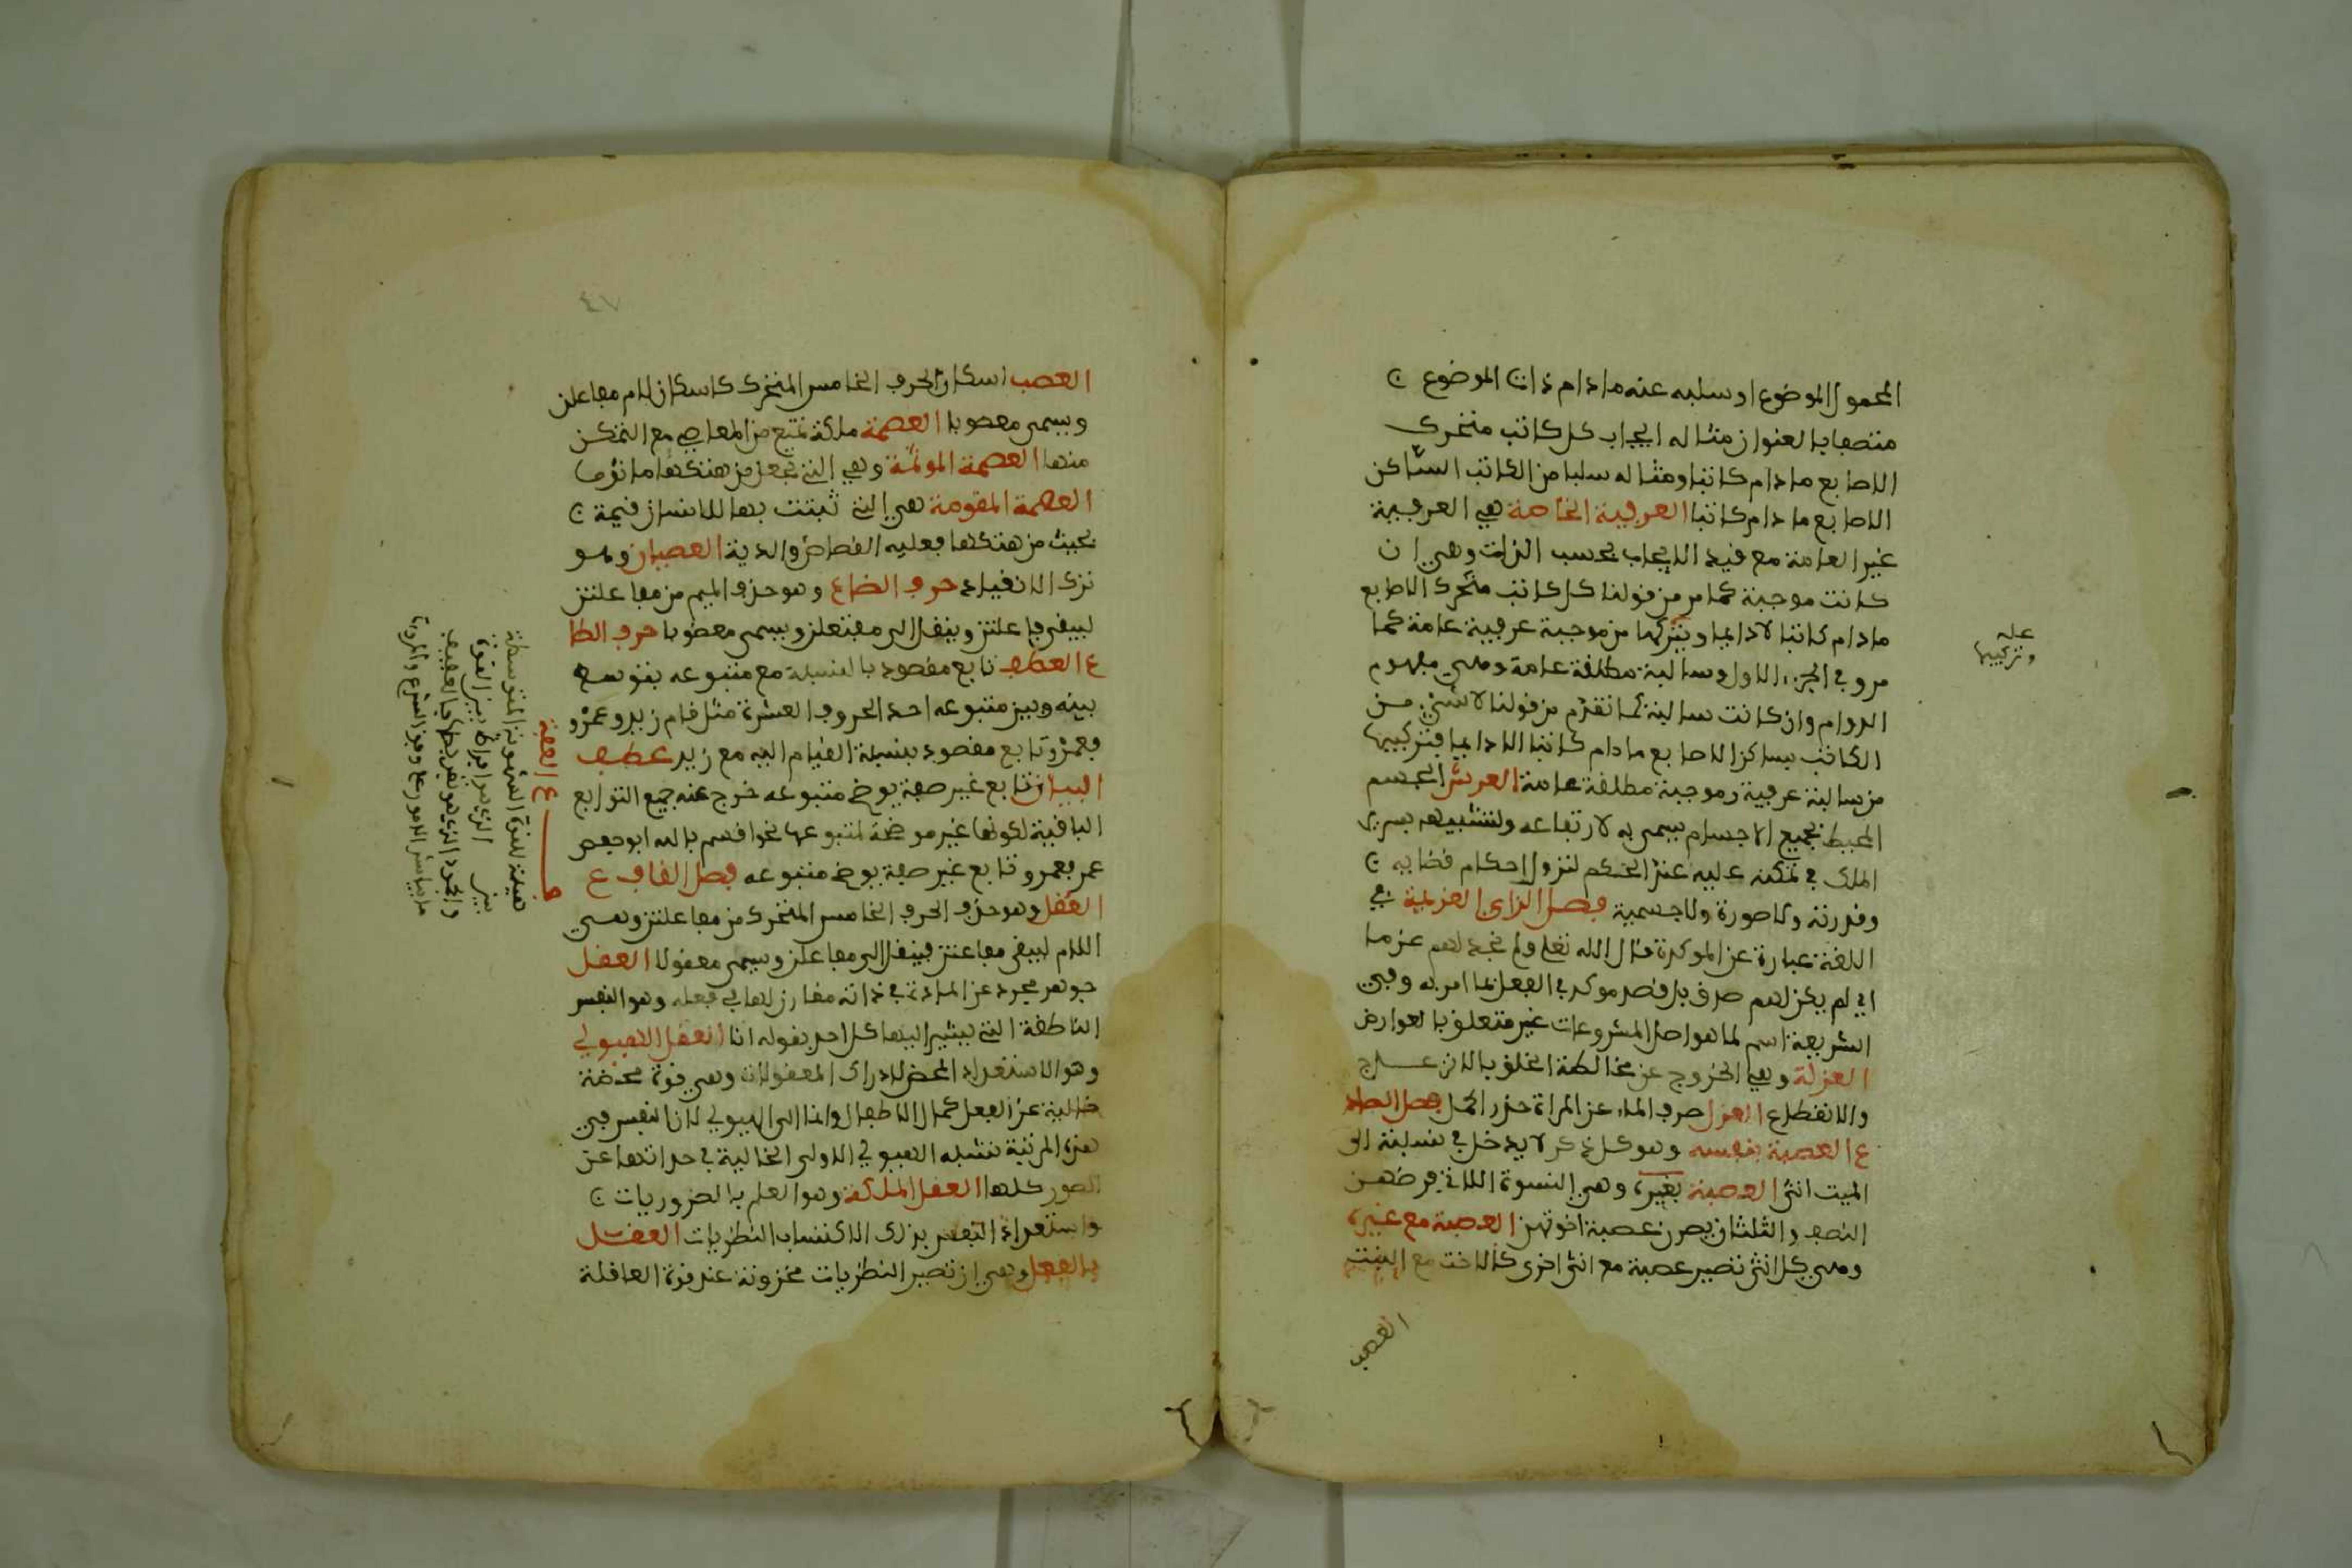 المحمول للموضوع او سلبه عنه ما دام ذات الموضوع
متصفا بالعنوان مثاله ايجاب كل كاتب متحرك
الاصابع ما دام كاتبا ومثاله سلبا من الكاتب الساكن
الاصابع ما دام كاتبا العرفية الخاصة هي العرفية
غير العامة مع قيد الايجاب بحسب الذات وهي ان
كانت موجبة كما مر من قولنا كل كاتب متحرك الاصابع
مادام كاتبا لا دايما وبتركيها من موجبة عرفية عامة كما
مر وفي الجزء الاول وسالبة مطلقة عامة وهي مفهوم
الدوام وان كانت سالبة كما تقدم من قولنا لا شيء من
الكاتب بساكن الاصابع ما دام كاتبا لا دايما فتركيبها
من سالبة عرفية وموجبة مطلقة عامة العرش الجسم
المحيط بجميع الاجسام يسمى به لارتفاعه ولتشبيهه بسرير
الملك في تمكنه عليه عند الحكم لنزول احكام قضايه
وقدرته ولا صورة ولا جسمية فصل الزاي العزيمة في
اللغة عبارة عن الموكدة قال الله تعلى ولم نجد لهم عزما
اي لم يكن لهم قصد موكد في الفعل بما امر به وفي
الشريعة اسم لما هو اصل المشروعات غير متعلق بالعوارض
العزلة وهي الخروج عن مخالطة الخلق بالانزعاج
والانقطاع العزل صرف الماء عن المراة حذر الحمل فصل الصاد
ع العصبة بنفسه وهو كل ذكر لا يدخل في نسبته الى
الميت انثى العصبة بغيره وهي النسوة اللاتي فرضهن
النصف والثلثان يصرن عصبة اخوتهن العصبة مع غيره
وهي كل انثى تصير عصبة مع انثى اخرى كالاخت مع البنت
العصب
عليه
وتركيبها
٤٧
العصب اسكان الحرف الخامس المتحرك كاسكان لام مفاعلتن
ويسمى معصوبا العصمة ملكة تمنع من المعاصي مع التمكن
منها العصمة الموثمة وهي التي تجعل من هتكها ماثوما
العصمة المقومة هي التي تثبت بها للانسان قيمة
بحيث من هتكها فعليه القصاص والدية العصيان وهو
ترك الانقياد حرف الضاع وهو حذف الميم من مفاعلتن
ليبقى فاعلتن وينقل الى مفتعلن ويسمى معضوبا حرف الطا
ع العطف تابع مقصود بالنسبة مع متبوعه يتوسط
بينه وبين متبوعه احد الحروف العشرة مثل قام زيد وعمرو
فعمرو تابع مقصود بنسبة القيام اليه مع زيد عطف
البيان تابع غير صفة يوضح متبوعه خرج عنه جميع التوابع
الباقية لكونها غير موضحة لمتبوعها نحو اقسم بالله ابو حفص
عمر فعمر و تابع غير صفة يوضح متبوعه فصل القاف ع
العقل وهو حذف الحرف الخامس المتحرك من مفاعلتن وهي
اللام ليبقى مفاعتن فينقل الى مفاعلن ويسمى معقولا العقل
جوهر مجرد عن المادة في ذاته مقارن لها في فعله وهو النفس
الناطقة التي يشير اليها كل احد بقوله انا العقل الهيولي
وهو الاستعداد المحض لادراك المعقولات وهي قوة محضة
خالية عن الفعل كما للاطفال وانما الى الهيولي لان النفس في
هذه المرتبة تشبه الهيولي الاولى الخالية في حد ذاتها عن
الصور كلها العقل الملكة وهو العلم بالضروريات
واستعداد النفس بذلك لاكتساب النظريات العقل
بالفعل وهي ان تصير النظريات مخزونة عند قوة العاقلة
ع العفة
هيئة للقوة الشهوية المتوسطة
بين الفجور الذي هو افراط هذه القوة
والخمود الذي هو تفريطها فالعفيف
من يباشر الامور على وفق الشرع والمروة